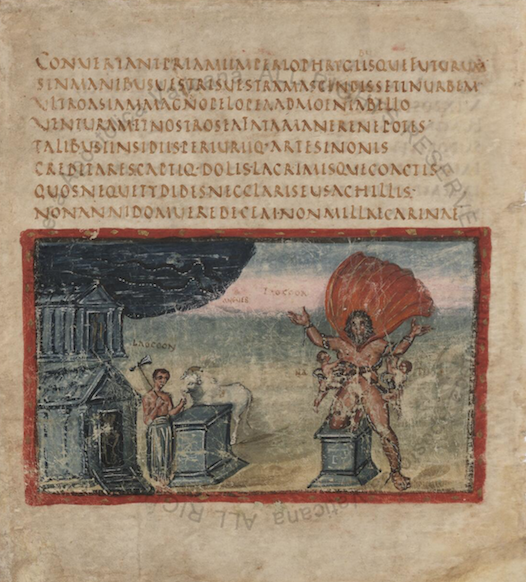 CONVERTANTPRIAMIIMPERIOPHRYGIISQUEFUTURUM
SINMANIBUSUESTRISUESTRAMASCENDISSETINURBEM
ULTROASIAMMAGNOPELOPEAADMOENIABELLO
VENTURAMETNOSTROSEAFATAMANERENEPOTES
TALIBUSINSIDIISPERIURIQ·ARTESINONIS
CREDITARESCAPTIQ·DOLIS·LACRIMISQUECOACTIS·
QUOSNEQUETYDIDESNECLARISEUSACHILLIS·
NONANNIDOMUEREDECEM·NONMILLECARINAE
LAOCOON
LAOCOON